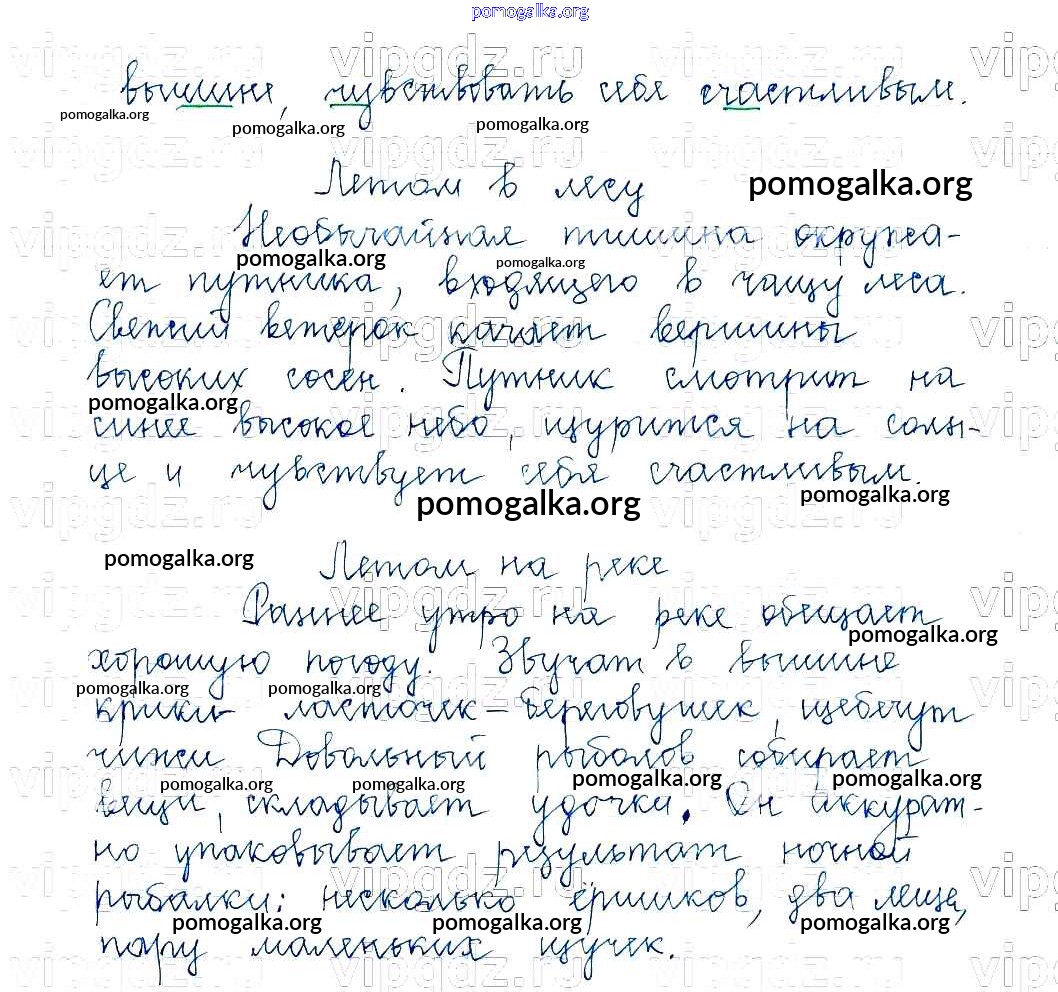 pomogalka.org
вышине, чувствовать себя счастливым.
Летом в лесу
Необычайная тишина окружа-
ет путника, входящего в чащу леса.
Свежий ветерок качает вершины
высоких сосен. Путник смотрит на
синее высокое небо, щурится на солн-
це и чувствует себя счастливым.
Летом на реке
Раннее утро на реке обещает
хорошую погоду. Звучат в вышине
крики ласточек-береговушек, щебечут
чижи. Довольный рыболов собирает
вещи, складывает удочки. Он аккурат-
но упаковывает результат ночной
рыбалки: несколько ёршиков, два леща,
пару маленьких щучек.